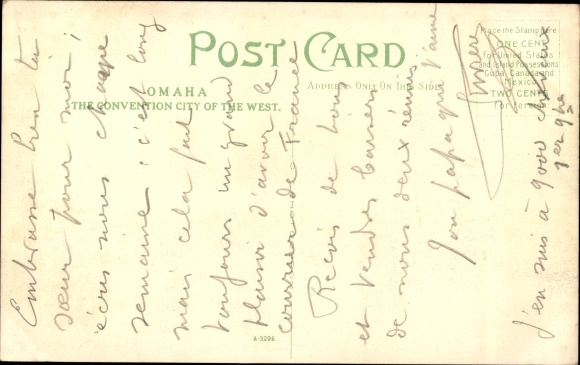 POST CARD
OMAHA
THE CONVENTION CITY OF THE WEST.
ADDRESS ONLY ON THIS SIDE
Place the Stamp here
ONE CENT
for United States
and Island Possessions
Cuba, Canada and
Mexico
TWO CENTS
for foreign
A-3296
Embrasse bien ta
sœur pour moi;
écris nous chaque
semaine; c'est long
mais cela fait
toujours un grand
plaisir d'avoir le
courrier de France
Reçois de bons
et tendres baisers
de nous deux
Ton papa qui t'aime
J'en suis à 9000